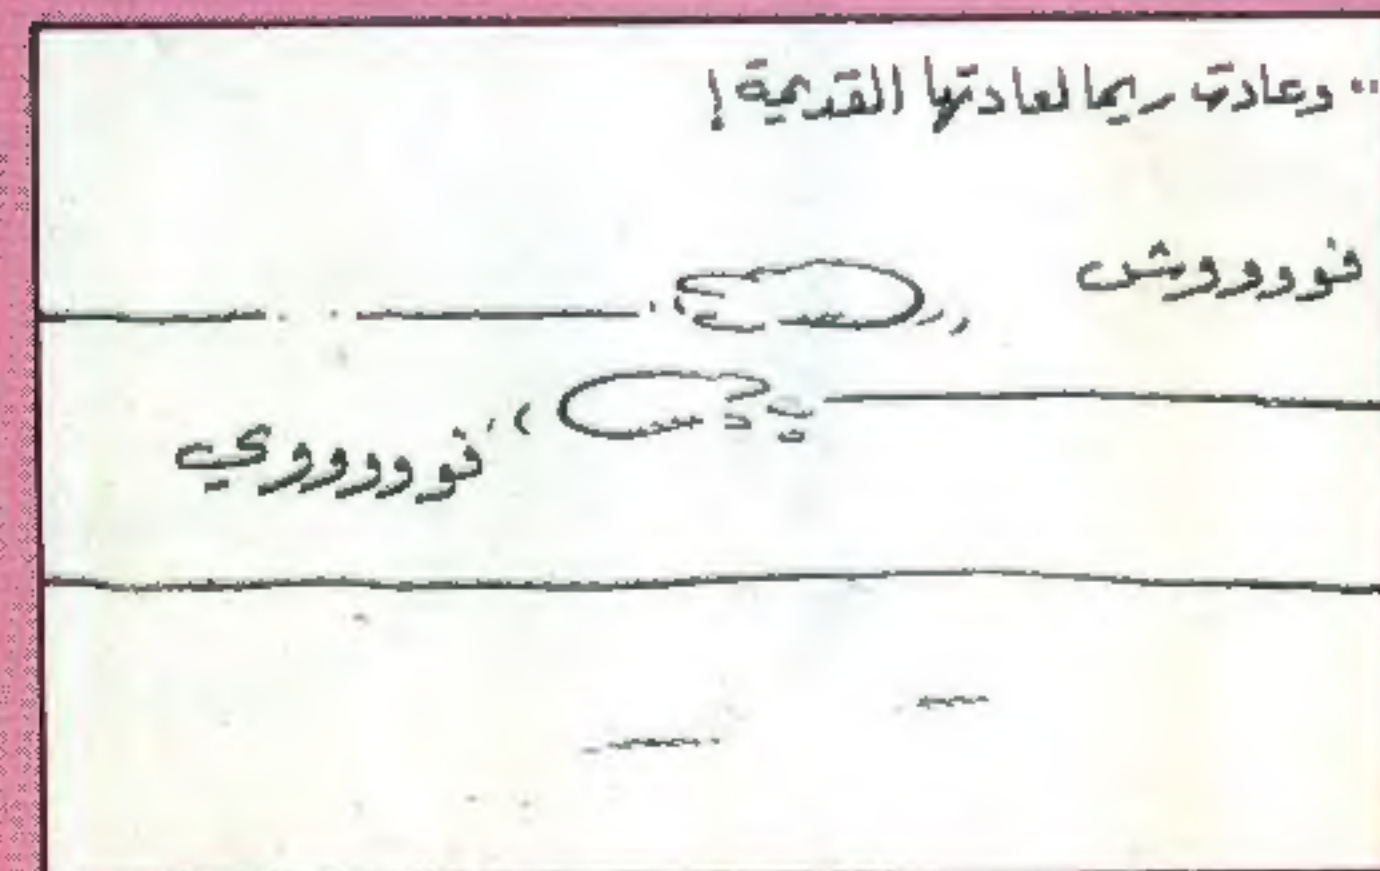 .. وعادت ريما لعادتها القديمة !
فووووش
فوووووي